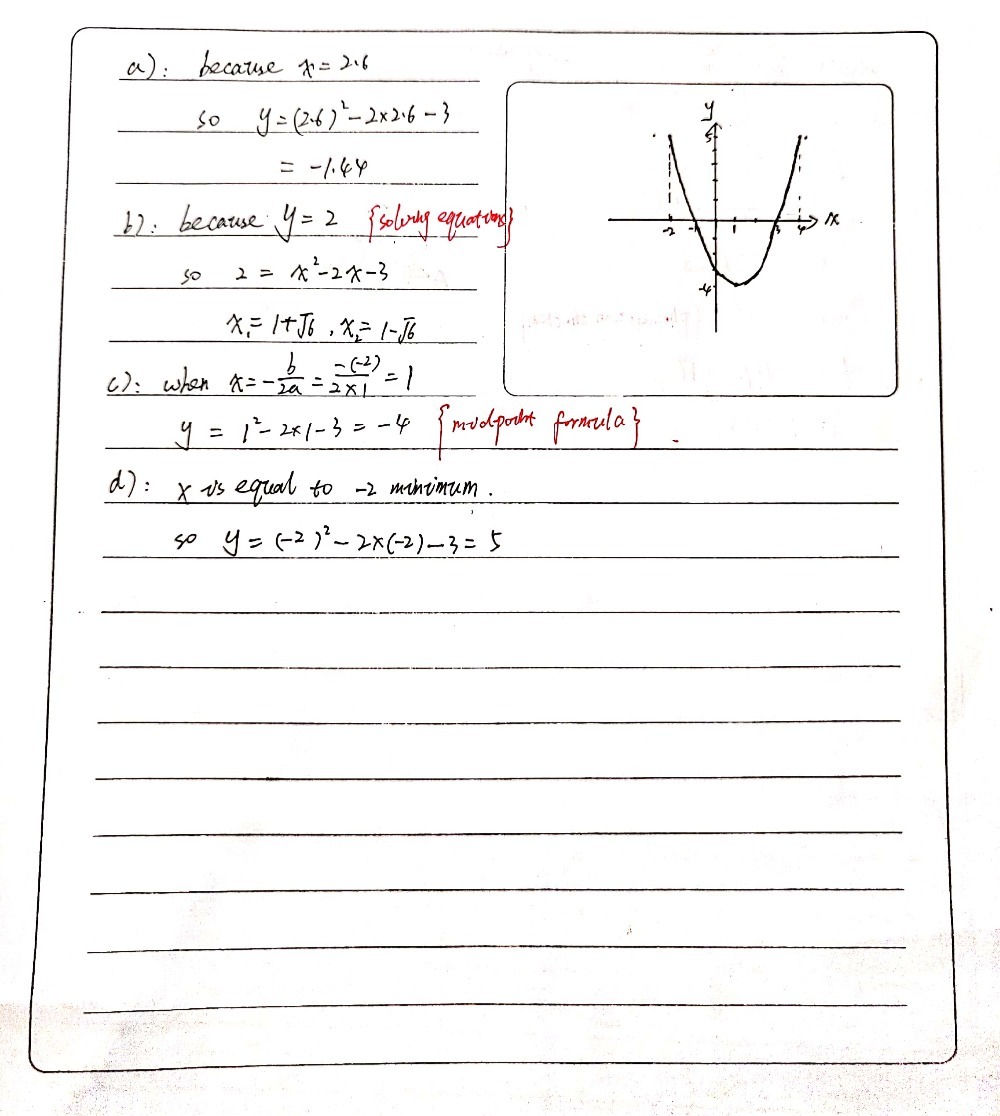 a): because x = 2.6
so y = (2.6)² - 2×2.6 - 3
= -1.44
b): because y = 2 {solving equations}
so 2 = x² - 2x - 3
x₁ = 1+√6, x₂ = 1-√6
c): when x = -b/2a = -(-2)/2×1 = 1
y = 1² - 2×1 - 3 = -4 {midpoint formula}
d): x is equal to -2 minimum.
so y = (-2)² - 2×(-2) - 3 = 5
y
5
-2 -1 1 3 4 x
-4